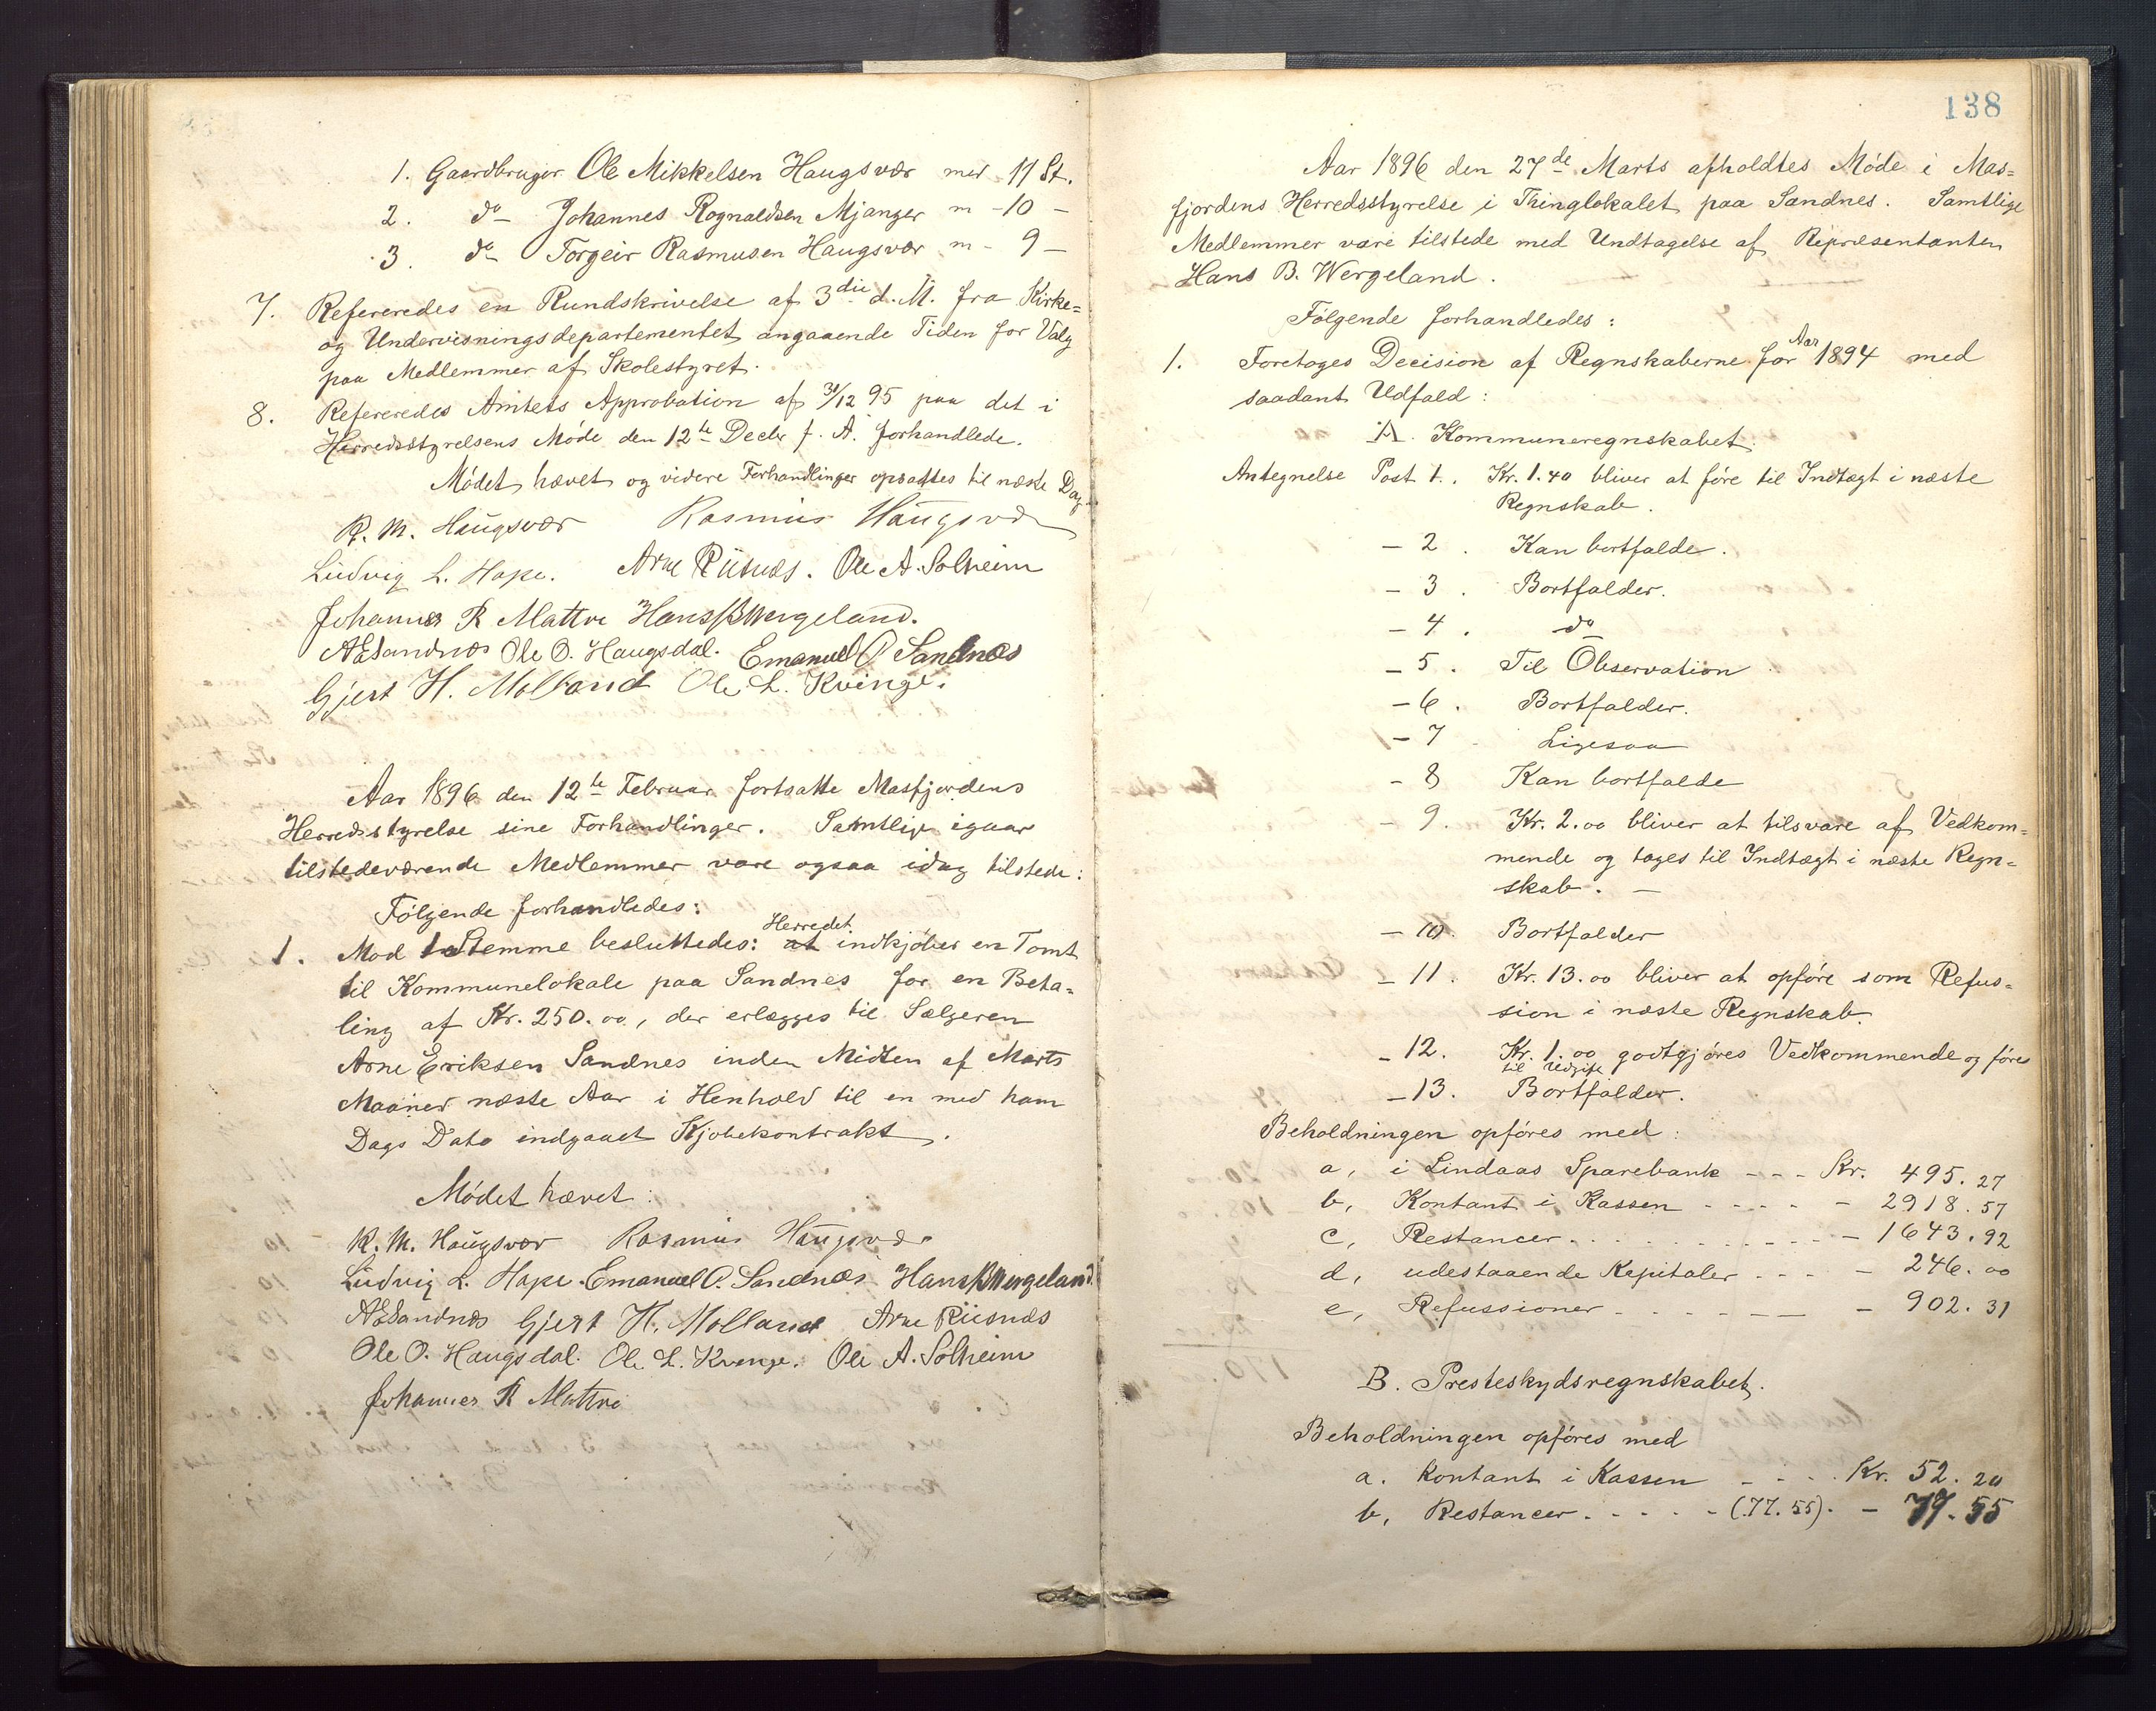 1. Gaardbruger Ole Mikkelsen Haugsvær med 11 St.
2. do Johannes Rognaldsen Mjanger m - 10 -
3. do Torgeir Rasmusen Haugsvær m - 9 -
7. Refereredes en Rundskrivelse af 3die d. M. fra Kirke=
og Undervisningsdepartementet angaaende Tiden for Valg
paa Medlemmer af Skolestyret.
8. Refereredes Amtets Approbation af 31/12 95 paa det i
Herredsstyrelsens Møde den 12te Decbr f. A. forhandlede.
Mødet hævet og videre Forhandlinger opsattes til næste Dag
R. M. Haugsvær Rasmus Haugsvær
Ludvig L. Hope. Arne Riisnæs. Ole A. Solheim
Johannes R Mattre Hans B Wergeland.
A E Sandnæs Ole O. Haugsdal. Emanuel O Sandnæs
Gjert H. Molland Ole L. Kvinge.
Aar 1896 den 12te Februar fortsatte Masfjordens
Herredsstyrelse sine Forhandlinger. Samtlige igaar
tilstedeværende Medlemmer vare ogsaa idag tilstede:
Følgende forhandledes:
Herredet
1. Mod 1 Stemme besluttedes: at indkjøber en Tomt
til Kommunelokale paa Sandnes for en Beta=
ling af Kr. 250.00, der erlægges til Sælgeren
Arne Eriksen Sandnes inden Midten af Marts
Maaned næste Aar i Henhold til en med ham
Dags Dato indgaaet Kjøbekontrakt.
Mødet hævet:
R. M. Haugsvær Rasmus Haugsvær
Ludvig L. Hope. Emanuel O. Sandnæs Hans B Wergeland.
A E Sandnæs Gjert H. Molland Arne Riisnæs
Ole O. Haugsdal. Ole L. Kvinge. Ole A. Solheim
Johannes R Mattre
138
Aar 1896 den 27de Marts afholdtes Møde i Mas=
fjordens Herredsstyrelse i Thinglokalet paa Sandnes. Samtlige
Medlemmer vare tilstede med Undtagelse af Repræsentanten
Hans B. Wergeland.
Følgende forhandledes:
Aar
1. Foretoges Decision af Regnskaberne for 1894 med
saadant Udfald:
A. Kommuneregnskabet.
Antegnelse Post 1. Kr. 1.40 bliver at føre til Indtægt i næste
Regnskab.
- 2. Kan bortfalde.
- 3. Bortfalder.
- 4. do
- 5. Til Observation
- 6. Bortfalder.
- 7 Ligesaa
- 8 Kan bortfalde
- 9. Kr. 2.00 bliver at tilsvare af Vedkom=
mende og tages til Indtægt i næste Regn=
skab. -
- 10. Bortfalder
- 11. Kr. 13.00 bliver at opføre som Refus=
sion i næste Regnskab.
- 12. Kr. 1.00 godtgjøres Vedkommende og føres
til Udgift
- 13. Bortfalder.
Beholdningen opføres med:
a, i Lindaas Sparebank - - - Kr. 495.27
b, Kontant i Kassen - - - - - 2918.57
c, Restancer. . . . . - - - - - 1643.92
d, udestaaende Kapitaler - - - - 246.00
e, Refussioner - - - - - - - 902.31
B. Presteskydsregnskabet.
Beholdningen opføres med
a. Kontant i Kassen - - - . Kr. 52.20
b, Restancer. - - - - (77.55). - 77.55